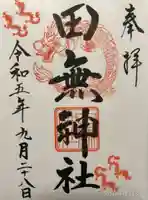 奉拝
田無神社
令和五年九月二十八日